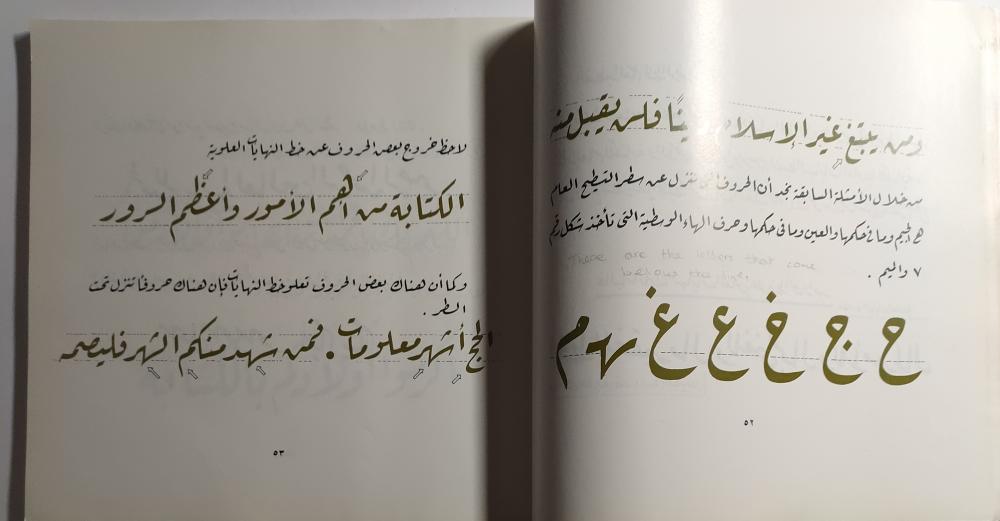 ومن يبتغ غير الإسلام دينًا فلن يقبل منه
من خلال الأمثلة السابقة نجد أن الحروف التي تنزل عن سطر التسطيح العام
هي الجيم وما في حكمها والعين وما في حكمها وحرف الهاء الوسطية التي تأخذ شكل رقم
٧ والميم .
These are the letters that come
below the line.
ح ج خ ع غ ـهـ م
٥٢
لاحظ خروج بعض الحروف عن خط النهايات العلوية
الكتابة من أهم الأمور وأعظم السرور
وكما أن هناك بعض الحروف تعلو خط النهايات فإن هناك حروفًا تنزل تحت
السطر .
الحج أشهر معلومات . فمن شهد منكم الشهر فليصمه
٥٣